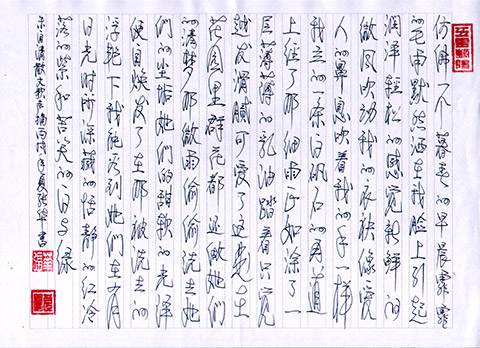 仿佛一个暮春的早晨霏霏
的毛雨默然洒在我脸上引起
润泽轻松的感觉新鲜的
微风吹动我的衣袂像爱
人的鼻息吹着我的手一样
我立的一条白矾石的甬道
上经了那细雨正如涂了一
层薄薄的乳油踏着只觉
越发滑腻可爱了这是在
花园里群花都还做她们
的清梦那微雨偷偷洗去她
们的尘垢她们的甜软的光泽
便自焕发了在那被洗去的
浮艳下我能看到她们在有
日光时所深藏的恬静的红冷
落的紫和苦笑的白与绿
朱自清散文歌声摘丙戌年夏张华书